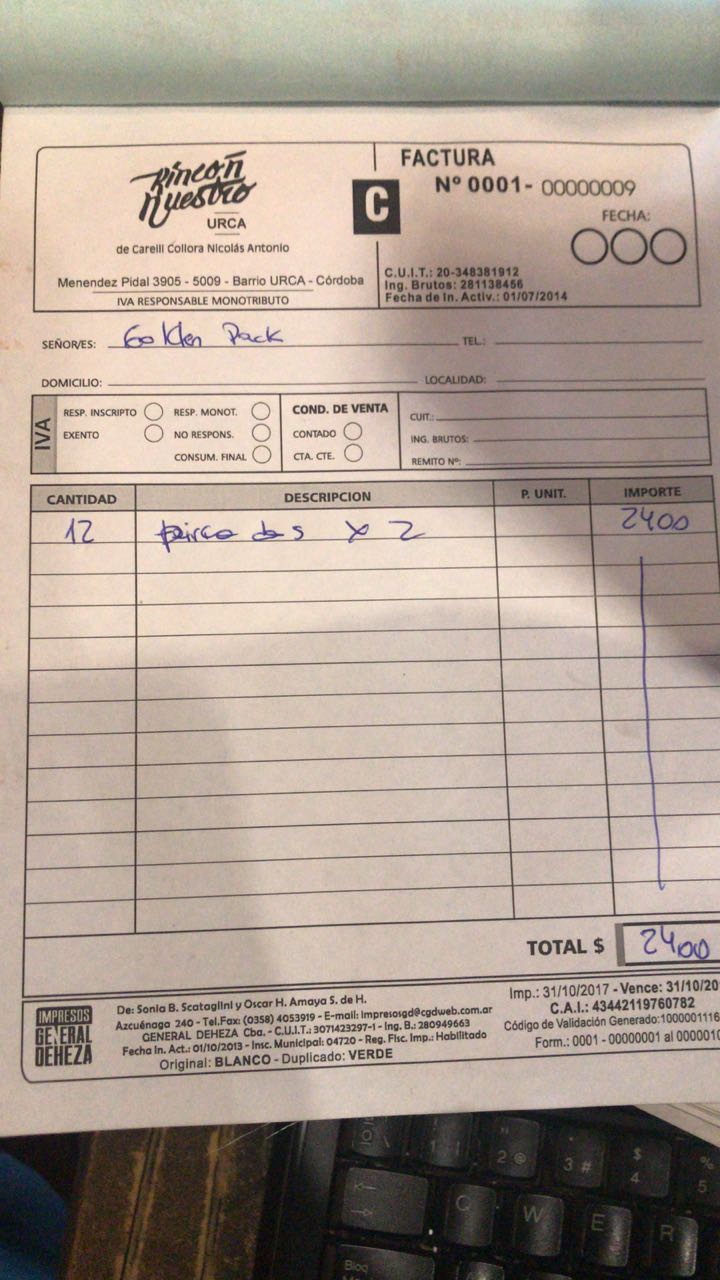 Rincón
Nuestro
URCA
de Careill Collora Nicolás Antonio
Menendez Pidal 3905 - 5009 - Barrio URCA - Córdoba
IVA RESPONSABLE MONOTRIBUTO
C
FACTURA
Nº 0001- 00000009
FECHA:
C.U.I.T.: 20-348381912
Ing. Brutos: 281138456
Fecha de In. Activ.: 01/07/2014
SEÑOR/ES: Golden Pack TEL.:
DOMICILIO: LOCALIDAD:
IVA
RESP. INSCRIPTO RESP. MONOT.
EXENTO NO RESPONS.
CONSUM. FINAL
COND. DE VENTA
CONTADO
CTA. CTE.
CUIT.:
ING. BRUTOS:
REMITO Nº:
CANTIDAD DESCRIPCION P. UNIT. IMPORTE
12 x 2 2400
TOTAL $ 2400
IMPRESOS
GENERAL
DEHEZA
De: Sonia B. Scataglini y Oscar H. Amaya S. de H.
Azcuénaga 240 - Tel.Fax: (0358) 4053919 - E-mail: impresosgd@cgdweb.com.ar
GENERAL DEHEZA Cba. - C.U.I.T.: 3071423297-1 - Ing. B.: 280949663
Fecha In. Act.: 01/10/2013 - Insc. Municipal: 04720 - Reg. Fisc. Imp.: Habilitado
Original: BLANCO - Duplicado: VERDE
Imp.: 31/10/2017 - Vence: 31/10/20
C.A.I.: 43442119760782
Código de Validación Generado: 1000001116
Form.: 0001 - 00000001 al 0000010
2 @
3 #
$ 4
% 5
Q W E R
Bloq